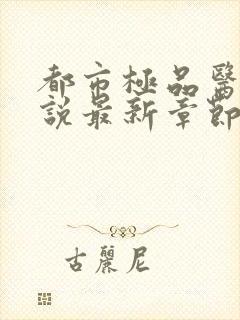 都市極品醫
說最新章節
古麗尼